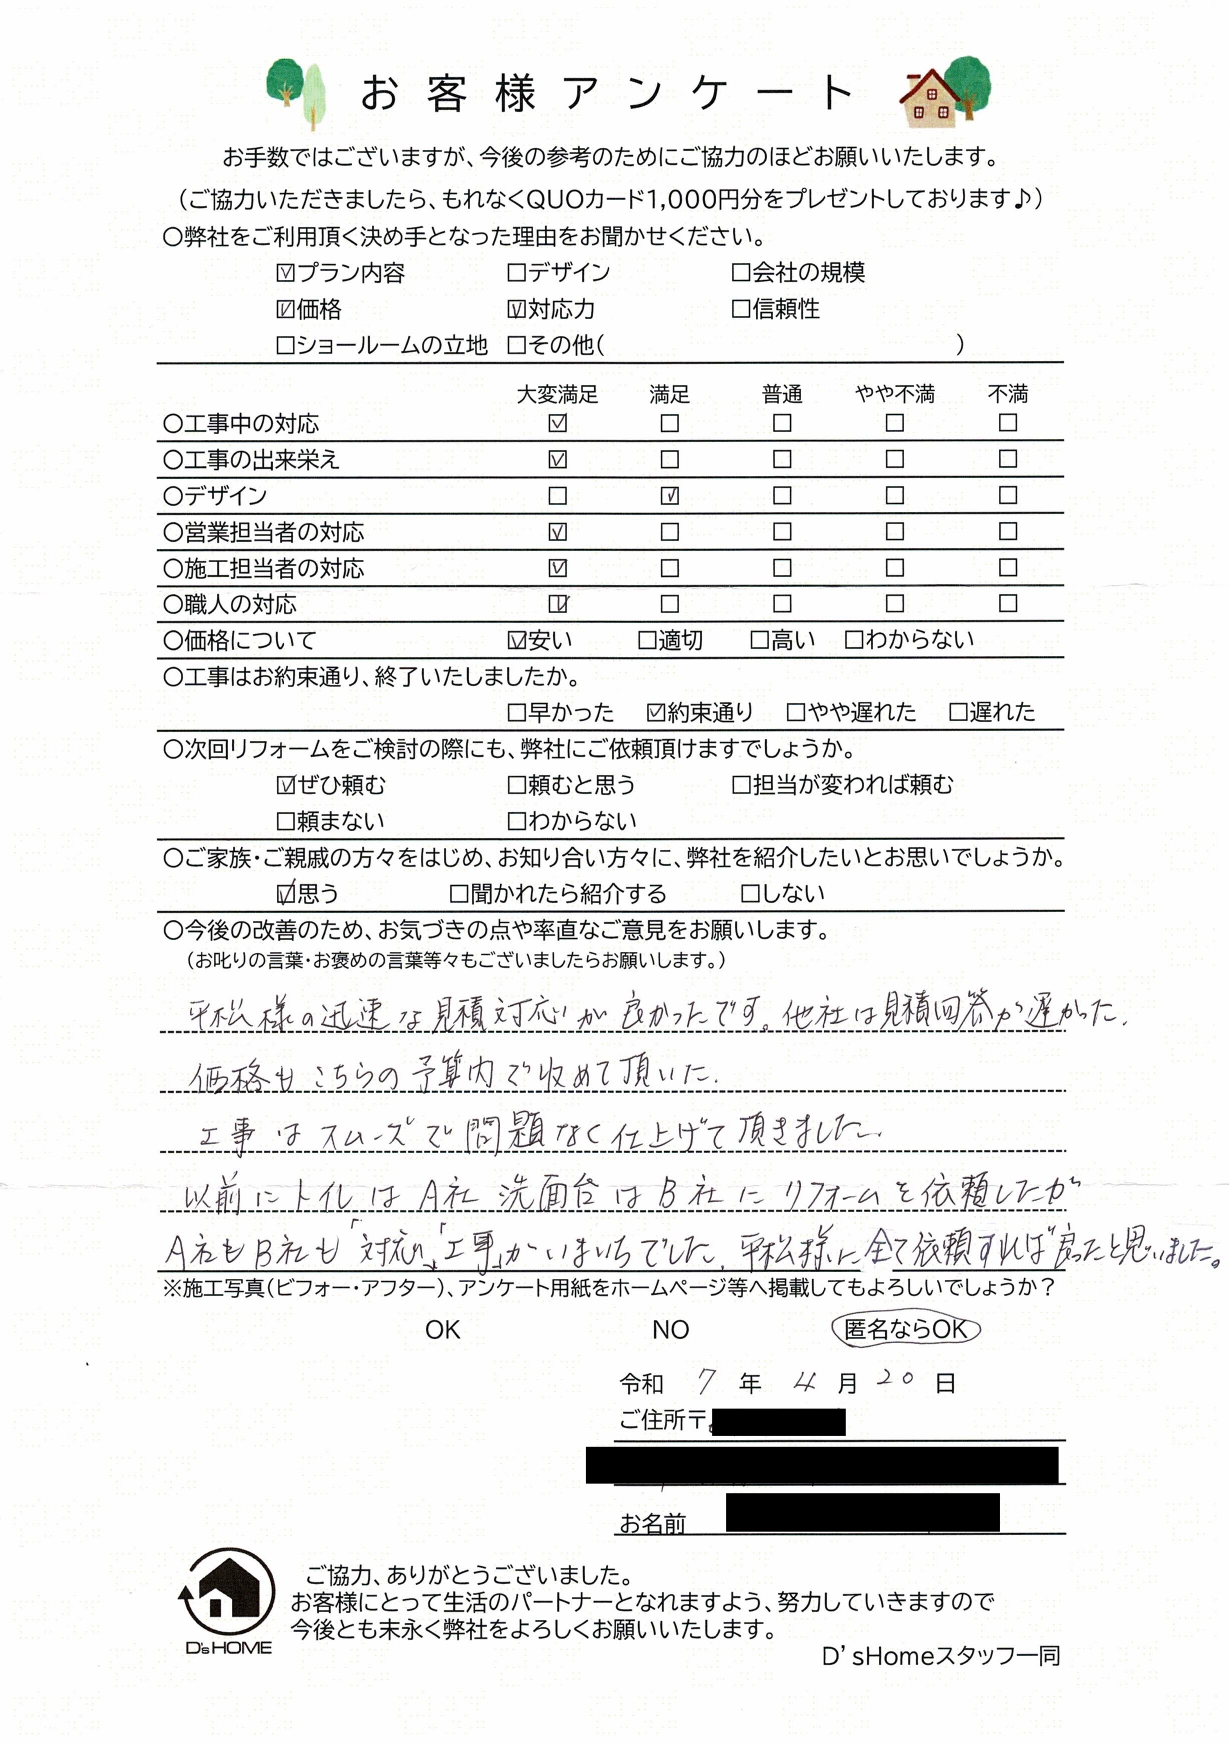 お客様アンケート
お手数ではございますが、今後の参考のためにご協力のほどお願いいたします。
（ご協力いただきましたら、もれなくQUOカード1,000円分をプレゼントしております♪）
○弊社をご利用頂く決め手となった理由をお聞かせください。
☑プラン内容 □デザイン □会社の規模
☑価格 ☑対応力 □信頼性
□ショールームの立地 □その他( )
大変満足 満足 普通 やや不満 不満
○工事中の対応 ☑ □ □ □ □
○工事の出来栄え ☑ □ □ □ □
○デザイン □ ☑ □ □ □
○営業担当者の対応 ☑ □ □ □ □
○施工担当者の対応 ☑ □ □ □ □
○職人の対応 ☑ □ □ □ □
○価格について ☑安い □適切 □高い □わからない
○工事はお約束通り、終了いたしましたか。
□早かった ☑約束通り □やや遅れた □遅れた
○次回リフォームをご検討の際にも、弊社にご依頼頂けますでしょうか。
☑ぜひ頼む □頼むと思う □担当が変われば頼む
□頼まない □わからない
○ご家族・ご親戚の方々をはじめ、お知り合い方々に、弊社を紹介したいとお思いでしょうか。
☑思う □聞かれたら紹介する □しない
○今後の改善のため、お気づきの点や率直なご意見をお願いします。
（お叱りの言葉・お褒めの言葉等々もございましたらお願いします。）
平松様の迅速な見積対応が良かったです。他社は見積回答が遅かった.
価格もこちらの予算内で収めて頂いた.
工事はスムーズで問題なく仕上げて頂きました.
以前にトイレはA社 洗面台はB社にリフォームを依頼したが
A社もB社も「対応」、「工事」がいまいちでした. 平松様に全て依頼すれば良ったと思いました。
※施工写真(ビフォー・アフター)、アンケート用紙をホームページ等へ掲載してもよろしいでしょうか？
OK NO 匿名ならOK
令和 7 年 4 月 20 日
ご住所〒
お名前
ご協力、ありがとうございました。
お客様にとって生活のパートナーとなれますよう、努力していきますので
今後とも末永く弊社をよろしくお願いいたします。
D's HOME
D'sHomeスタッフ一同